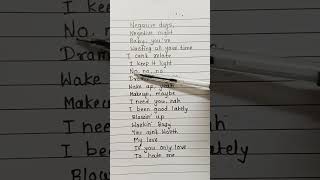 Negative days,
Negative night
Baby, you've
Wasting all your time
I cant relate
I keep it light
No, no, no
Drama
Wake up, yeah
Makeup, maybe
I need you, nah
I been good lately
Blowin' up
Workin' Busy
You aint Worth
My love
If you only love
To hate me